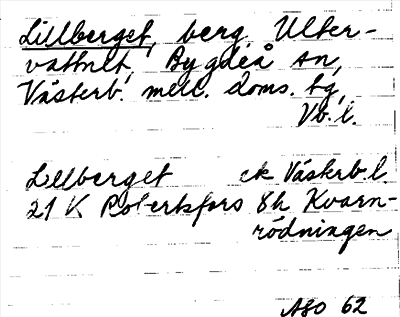 Lillberget, berg Ulter-
vattnet, Bygdeå sn,
Västerb. mell. doms. tg,
Vb. l.
Lillberget ek Västerb. l.
21 K Robertsfors 8h Kvarn-
rödningen
ASO 62